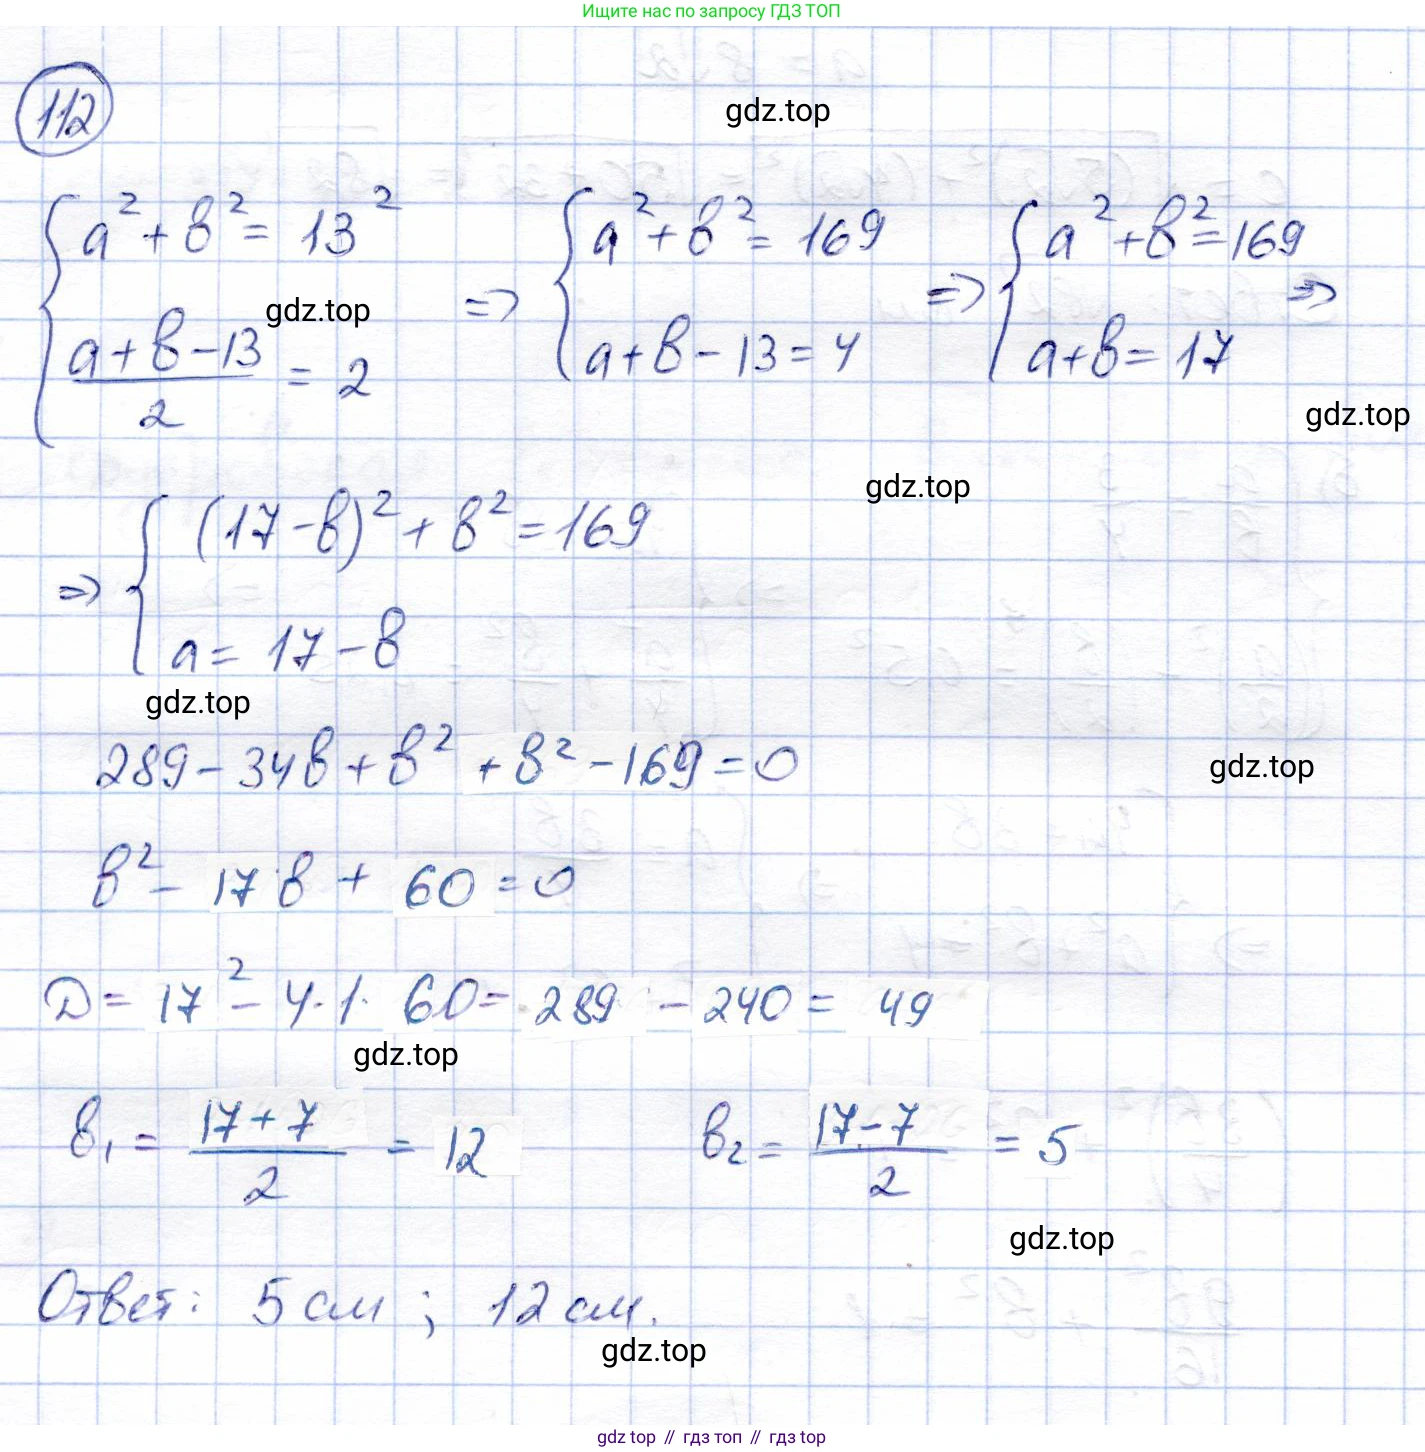 Ищите нас по запросу ГДЗ ТОП
112
gdz.top
a² + b² = 13² => a² + b² = 169 => a² + b² = 169 =>
gdz.top
(a + b - 13)/2 = 2 a + b - 13 = 4 a + b = 17
gdz.top
gdz.top
=> (17 - b)² + b² = 169
a = 17 - b
gdz.top
289 - 34b + b² + b² - 169 = 0
gdz.top
b² - 17b + 60 = 0
D = 17² - 4·1·60 = 289 - 240 = 49
gdz.top
b₁ = (17 + 7)/2 = 12 b₂ = (17 - 7)/2 = 5
gdz.top
Ответ: 5 см ; 12 см.
gdz.top
gdz top // гдз топ // гдз top